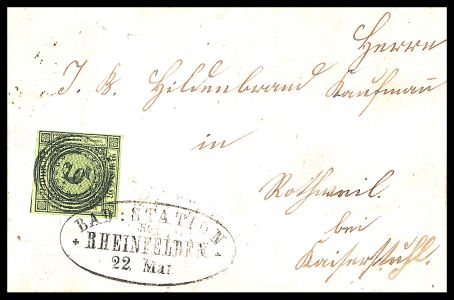 Herrn
J. B. Hildenbrand Kaufmann
in
Rothweil.
bei
Kaiserstuhl.
BAD: STATION
RHEINFELDEN
22 Mai